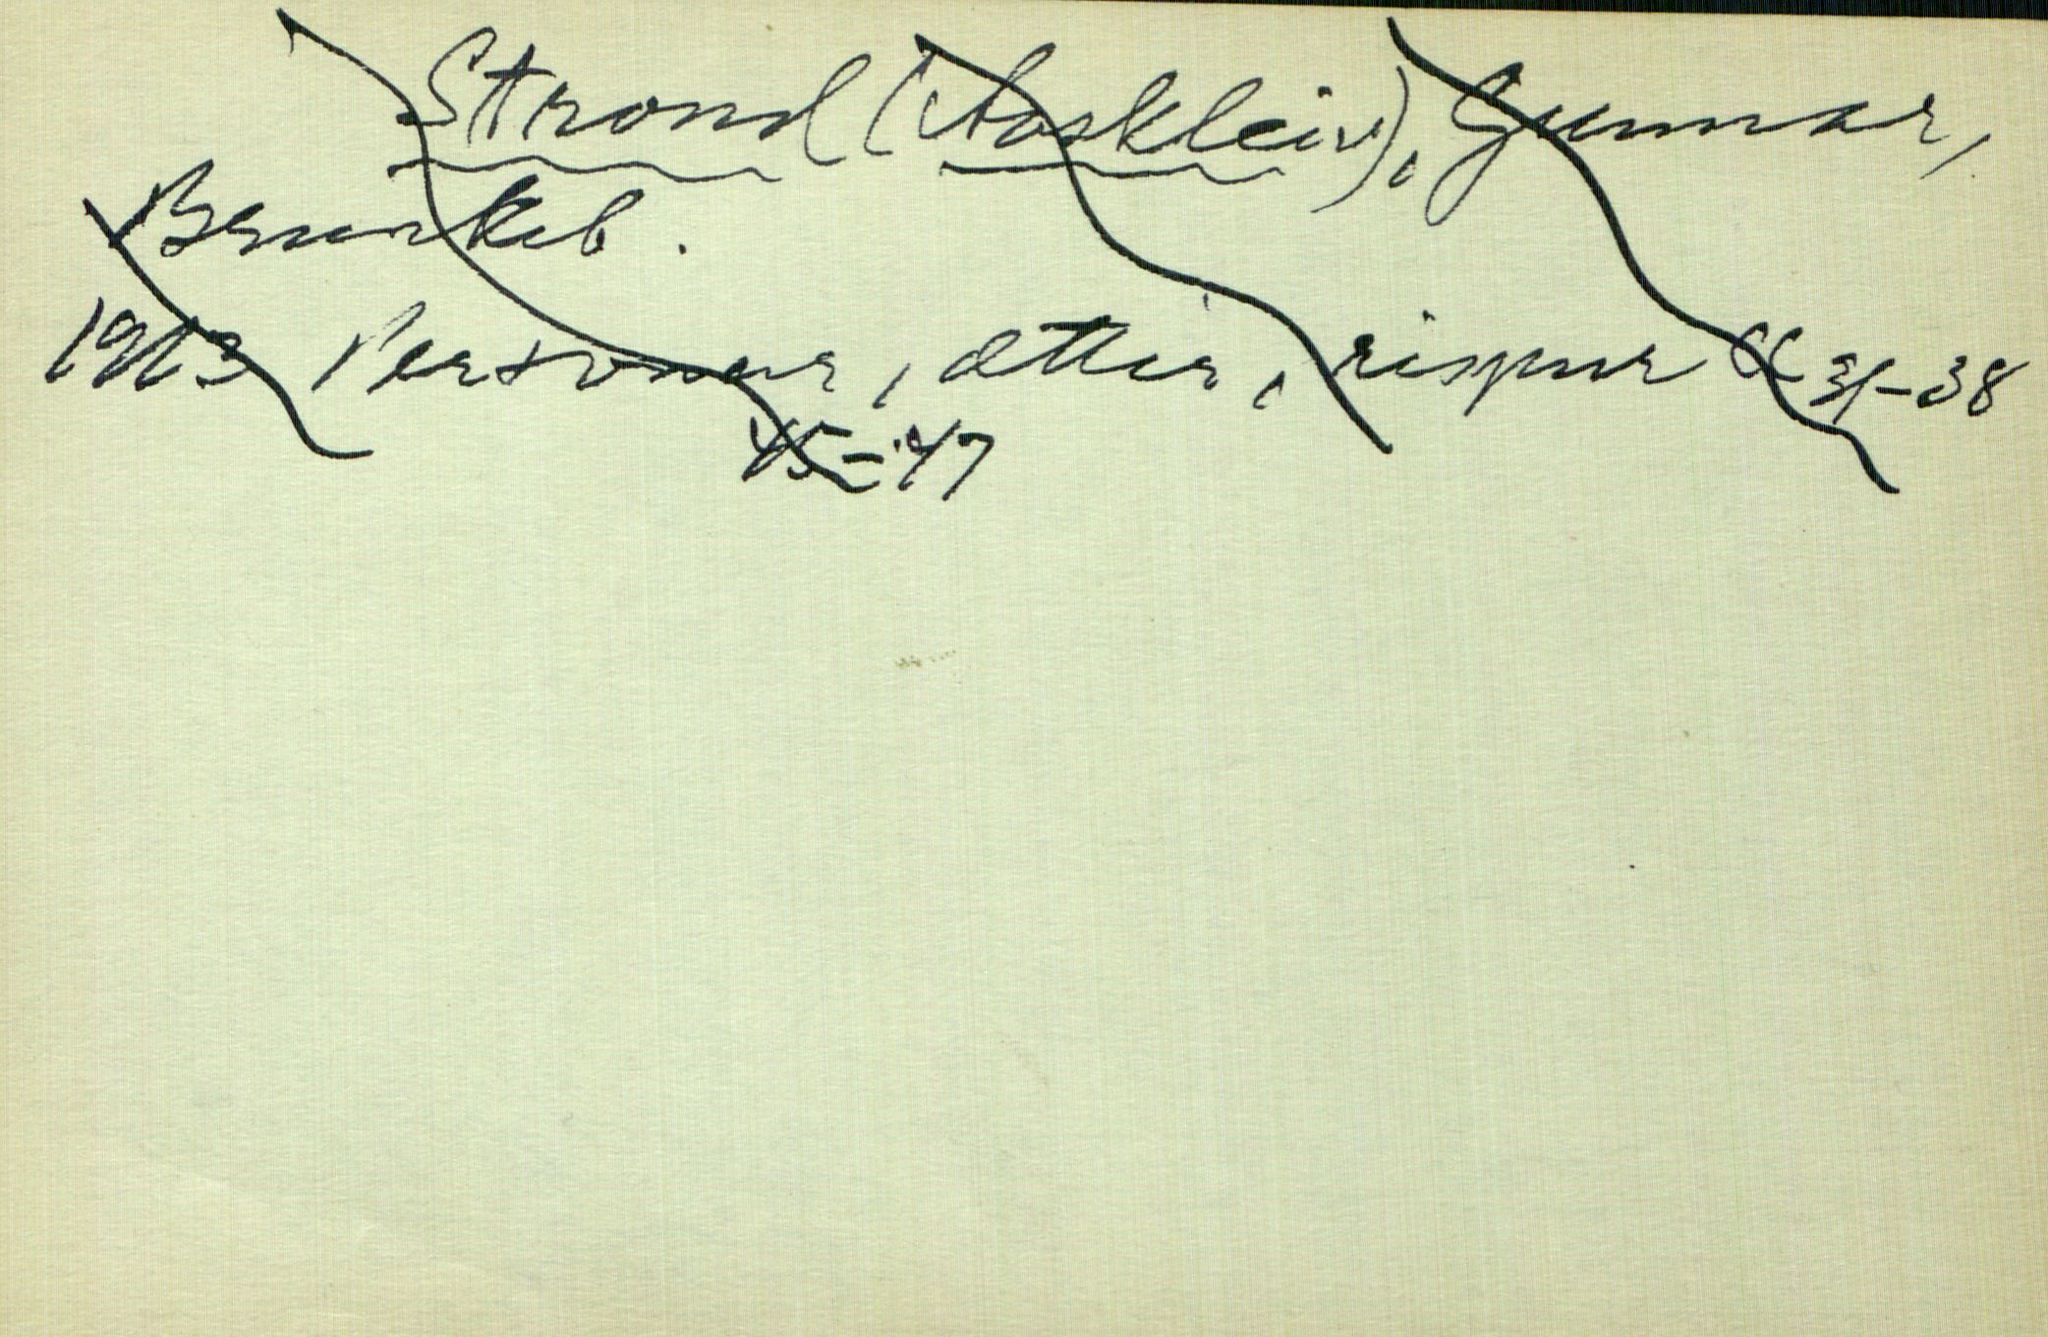 Strond (Aaskleiv), Gunnar,
Brunkeb.
1913 Personar, ætter, rispur 31-38
45-47